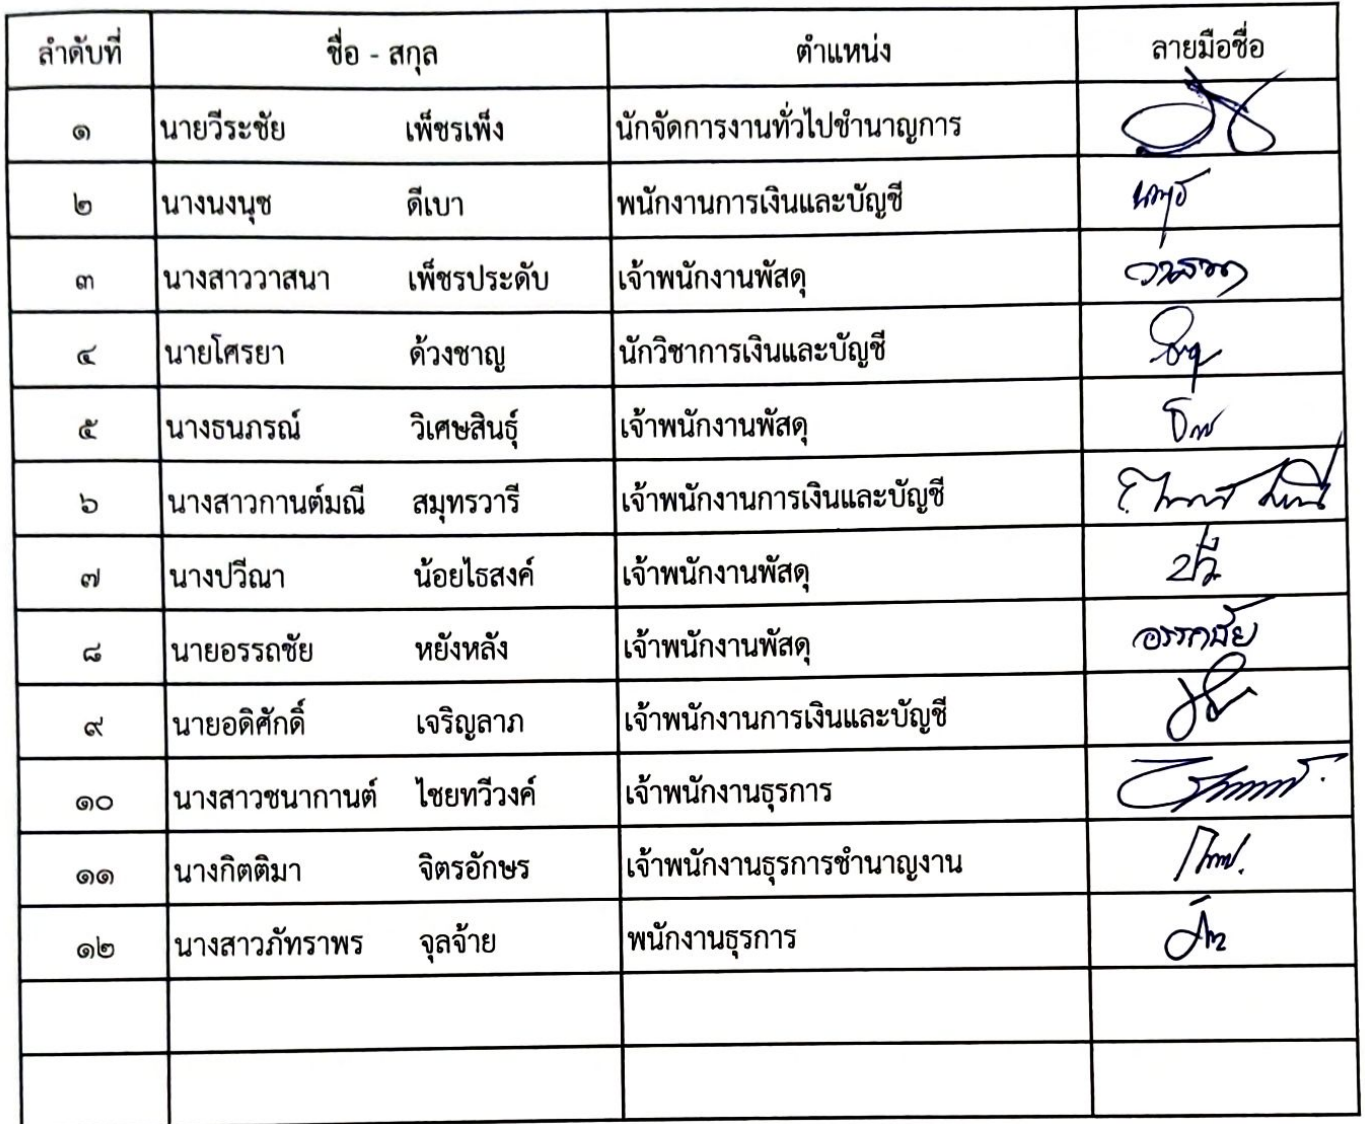 ลำดับที่ ชื่อ - สกุล ตำแหน่ง ลายมือชื่อ
๑ นายวีระชัย เพ็ชรเพ็ง นักจัดการงานทั่วไปชำนาญการ
๒ นางนงนุช ดีเบา พนักงานการเงินและบัญชี
๓ นางสาววาสนา เพ็ชรประดับ เจ้าพนักงานพัสดุ วาสนา
๔ นายโศรยา ด้วงชาญ นักวิชาการเงินและบัญชี
๕ นางธนภรณ์ วิเศษสินธุ์ เจ้าพนักงานพัสดุ
๖ นางสาวกานต์มณี สมุทรวารี เจ้าพนักงานการเงินและบัญชี
๗ นางปวีณา น้อยไธสงค์ เจ้าพนักงานพัสดุ
๘ นายอรรถชัย หยังหลัง เจ้าพนักงานพัสดุ อรรถชัย
๙ นายอดิศักดิ์ เจริญลาภ เจ้าพนักงานการเงินและบัญชี
๑๐ นางสาวชนากานต์ ไชยทวีวงค์ เจ้าพนักงานธุรการ
๑๑ นางกิตติมา จิตรอักษร เจ้าพนักงานธุรการชำนาญงาน
๑๒ นางสาวภัทราพร จุลจ้าย พนักงานธุรการ